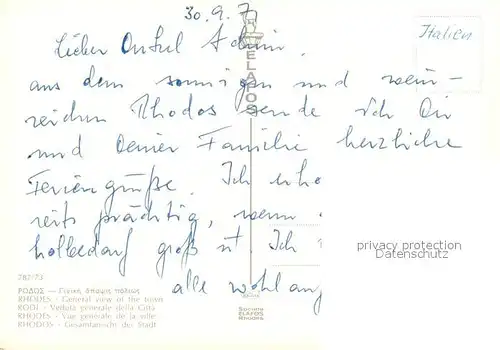 30.9.7
Italien
Lieber Onkel Achim,
aus dem sonnigen und wein-
reichen Rhodos sende ich Dir
und Deiner Familie herzliche
Feriengrüße. Ich erho
reits prächtig, wenn
groß ist. Ich
alle wohl auf
ELAFOS
privacy protection
Datenschutz
782/73
ΡΟΔΟΣ — Γενική ἄποψις πόλεως
RHODES - General view of the town
RODI - Veduta generale della Città
RHODES - Vue générale de la ville
RHODOS - Gesamtansicht der Stadt
ELAFOS
Rhodes